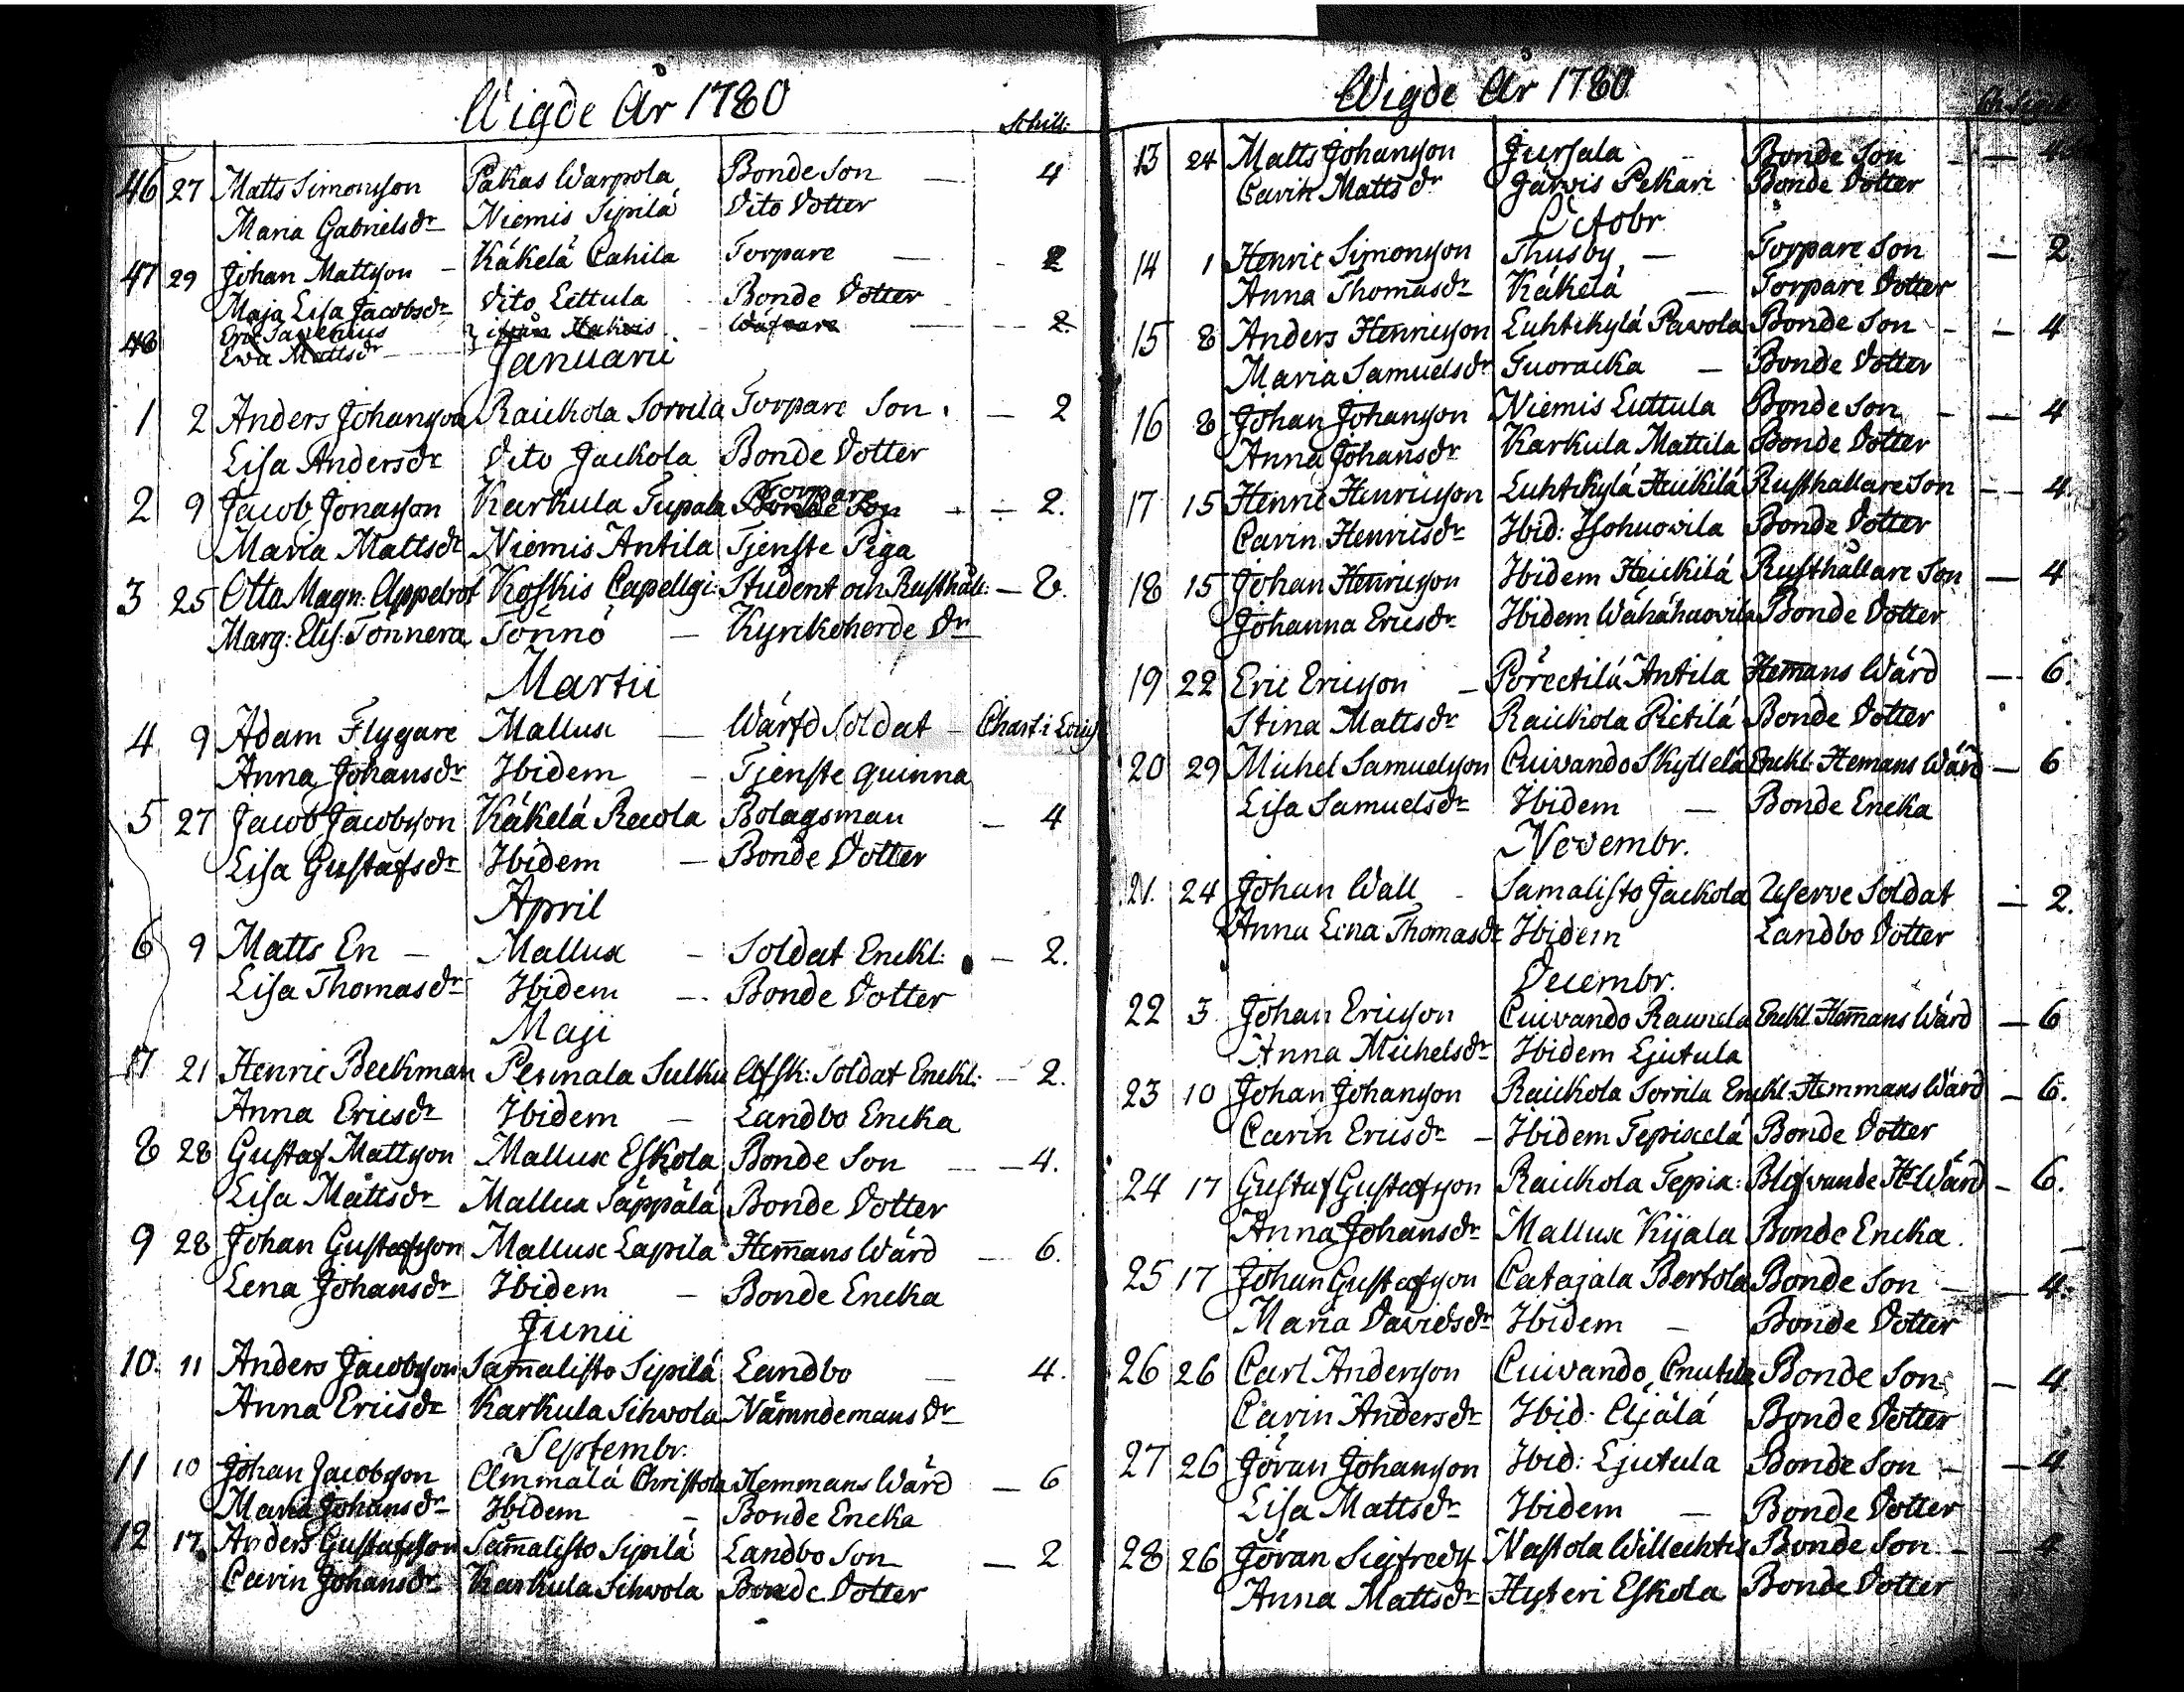 Wigde År 1780
Schill:
46 27 Matts Simonsson Pakas Warpola Bonde Son — 4
Maria Gabrielsdr Niemis Sipilä Dito Dotter
47 29 Johan Mattsson – Käkelä Cahila Torpare — 2
Maja Lisa Jacobsdr Dito Eittula Bonde Dotter
48 Eric Savenius ifrån Hakois Wäfvare — 2.
Ewa Mattsdr
Januarii
1 2 Anders Johansson Raickola Sorvila Torpare Son. — 2
Lisa Andersdr Dito Jackola Bonde Dotter
2 9 Jacob Jonasson Karkula Tupala Torpare Bonde Son — 2.
Maria Mattsdr Niemis Antila Tjenste Piga
3 25 Otto Magn: Appelrot Koskis Capellgi: Student och Rusthåll: — 8.
Marg: Elis: Tönnera Tönnö — Kyrckoherde Dr
Martii
4 9 Adam Flygare Mallux — Wärfd Soldat – Chart:
Anna Johansdr Ibidem – Tjenste quinna
5 27 Jacob Jacobsson Käkelä Recola Bolagsman — 4
Lisa Gustafsdr Ibidem – Bonde Dotter
April
6 9 Matts En – Mallux – Soldat Enckl: — 2.
Lisa Thomasdr Ibidem — Bonde Dotter
Maji
7 21 Henric Beckman Pennala Sulku Afsk: Soldat Enckl: — 2.
Anna Ericsdr Ibidem – Landbo Encka
8 28 Gustaf Mattsson Mallux Eskola Bonde Son — 4.
Lisa Mattsdr Mallux Säppälä Bonde Dotter
9 28 Johan Gustafsson Mallux Lapila Hemans Wärd — 6.
Lena Johansdr Ibidem – Bonde Encka
Junii
10. 11 Anders Jacobsson Samalisto Sipilä Landbo — 4.
Anna Ericsdr Karkula Sihvola Nämndemans Dr
Septembr.
11 10 Johan Jacobsson Ammälä Christola Hemmans Wärd — 6
Maria Johansdr Ibidem – Bonde Encka
12 17. Anders Gustafsson Samalisto Sipilä Landbo Son — 2
Carin Johansdr Karkula Sihvola Bonde Dotter
Wigde År 1780
13 24 Matts Johansson Jursala – Bonde Son — 4
Carin Mattsdr Järvis Pekari Bonde Dotter
Octobr
14 1 Henric Simonsson Thusby – Torpare Son — 2.
Anna Thomasdr Käkelä — Torpare Dotter
15 8 Anders Henricsson Luhtikylä Pavola Bonde Son – — 4
Maria Samuelsdr Tuoracka – Bonde Dotter
16 8 Johan Johansson Niemis Luttula Bonde Son – — 4
Anna Johansdr Karkula Mattila Bonde Dotter
17 15 Henric Henricsson Luhtikylä Heickilä Rusthållare Son — 4.
Carin Henricsdr Ibid: Isohuovila Bonde Dotter
18 15 Johan Henricsson Ibidem Heickilä Rusthållare Son — 4
Johanna Ericsdr Ibidem Wähähuovila Bonde Dotter
19 22 Eric Ericsson – Pörectilä Antila Hemans Wärd — 6.
Stina Mattsdr Raickola Rietilä Bonde Dotter
20 29 Michel Samuelsson Cuivando Skyttelä Enckl: Hemans Wärd — 6
Lisa Samuelsdr Ibidem — Bonde Encka
Novembr.
21. 24 Johan Wall – Samalisto Jackola Reserve Soldat — 2.
Anna Lena Thomasdr Ibidem Landbo Dotter
Decembr.
22 3 Johan Ericsson Cuivando Raunela Enckl. Hemans Wärd — 6
Anna Michelsdr Ibidem Ljutula
23 10 Johan Johansson Raickola Sorvila Enckl. Hemmans Wärd — 6.
Carin Ericsdr – Ibidem Tepixelä Bonde Dotter
24 17 Gustaf Gustafsson Raickola Tepix: Blifvande H: Wärd — 6.
Anna Johansdr Mallux Kijala Bonde Encka.
25 17 Johan Gustafsson Catajala Bertola Bonde Son — 4.
Maria Davidsdr Ibidem – Bonde Dotter
26 26 Carl Andersson Cuivando Cnutila Bonde Son — 4.
Carin Andersdr Ibid: Äijälä Bonde Dotter
27 26 Göran Johansson Ibid: Ljutula Bonde Son – — 4
Lisa Mattsdr Ibidem — Bonde Dotter
28 26 Göran Siegfredss Nastola Willechtis Bonde Son – — 4
Anna Mattsdr Hyteri Eskola Bonde Dotter